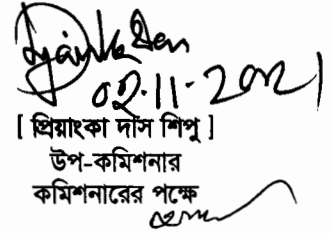 ০২-11-2021
[ প্রিয়াংকা দাস শিপু ]
উপ-কমিশনার
কমিশনারের পক্ষে